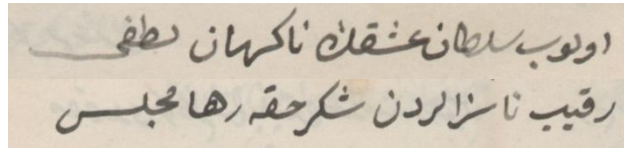 اولوب سلطان عشقك ناكهان لطفى
رقيب ناسزالردن شكر حقه رها مجلس